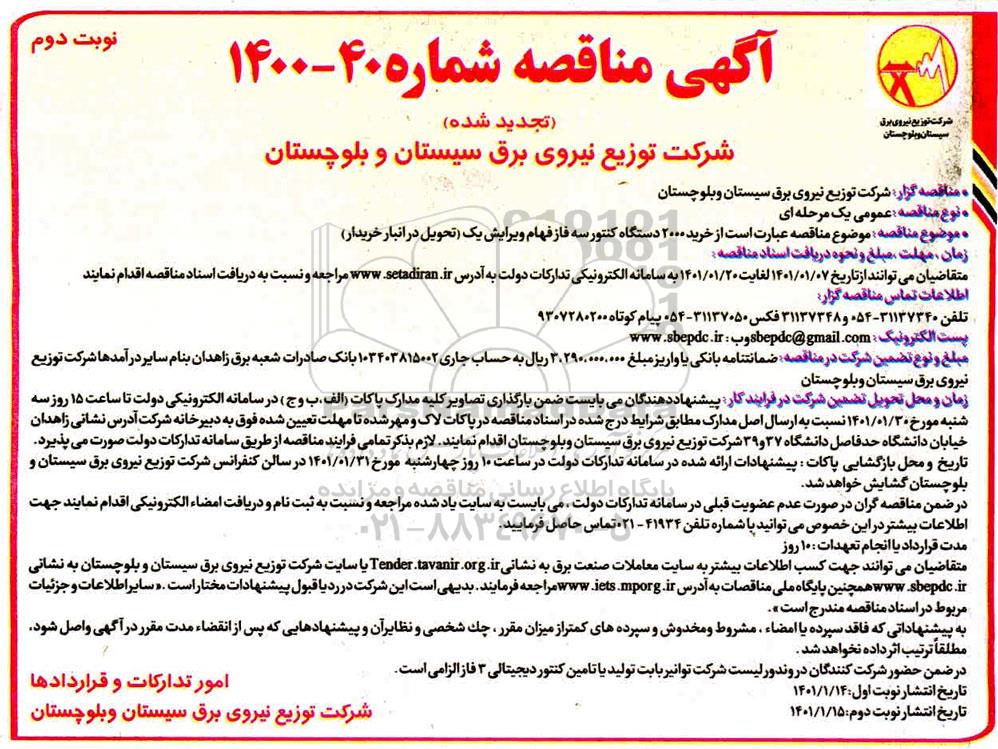 نوبت دوم
آگهی مناقصه شماره ۴۰-۱۴۰۰
(تجدید شده)
شرکت توزیع نیروی برق سیستان و بلوچستان
شرکت توزیع نیروی برق
سیستان وبلوچستان
• مناقصه گزار: شرکت توزیع نیروی برق سیستان وبلوچستان
• نوع مناقصه: عمومی یک مرحله ای
• موضوع مناقصه: موضوع مناقصه عبارت است از خرید ۲۰۰۰ دستگاه کنتور سه فاز فهام ویرایش یک (تحویل در انبار خریدار)
زمان، مهلت، مبلغ و نحوه دریافت اسناد مناقصه:
متقاضیان می توانند از تاریخ ۱۴۰۱/۰۱/۰۷ لغایت ۱۴۰۱/۰۱/۲۰ به سامانه الکترونیکی تدارکات دولت به آدرس www.setadiran.ir مراجعه و نسبت به دریافت اسناد مناقصه اقدام نمایند
اطلاعات تماس مناقصه گزار:
تلفن ۳۱۱۳۷۳۴۰-۰۵۴ و ۳۱۱۳۷۳۴۸ فکس ۳۱۱۳۷۰۵۰-۰۵۴ پیام کوتاه ۹۳۰۷۲۸۰۲۰۰
پست الکترونیک: sbepdc@gmail.com وب: www.sbepdc.ir
مبلغ و نوع تضمین شرکت در مناقصه: ضمانتنامه بانکی یا واریز مبلغ ۳،۲۹۰،۰۰۰،۰۰۰ ریال به حساب جاری ۱۰۳۴۰۳۸۱۵۰۰۲ بانک صادرات شعبه برق زاهدان بنام سایر در آمدها شرکت توزیع
نیروی برق سیستان وبلوچستان
زمان و محل تحویل تضمین شرکت در فرایند کار: پیشنهاد دهندگان می بایست ضمن بارگذاری تصاویر کلیه مدارک پاکات (الف، ب و ج) در سامانه الکترونیکی دولت تا ساعت ۱۵ روز سه
شنبه مورخ ۱۴۰۱/۰۱/۳۰ نسبت به ارسال اصل مدارک مطابق شرایط درج شده در اسناد مناقصه در پاکات لاک و مهر شده تا مهلت تعیین شده فوق به دبیرخانه شرکت آدرس نشانی زاهدان
خیابان دانشگاه حدفاصل دانشگاه ۳۷ و ۳۹ شرکت توزیع نیروی برق سیستان وبلوچستان اقدام نمایند. لازم بذکر تمامی فرایند مناقصه از طریق سامانه تدارکات دولت صورت می پذیرد.
تاریخ و محل بازگشایی پاکات: پیشنهادات ارائه شده در سامانه تدارکات دولت در ساعت ۱۰ روز چهارشنبه مورخ ۱۴۰۱/۰۱/۳۱ در سالن کنفرانس شرکت توزیع نیروی برق سیستان و
بلوچستان گشایش خواهد شد.
در ضمن مناقصه گران در صورت عدم عضویت قبلی در سامانه تدارکات دولت، می بایست به سایت یاد شده مراجعه و نسبت به ثبت نام و دریافت امضاء الکترونیکی اقدام نمایند جهت
اطلاعات بیشتر در این خصوص می توانید با شماره تلفن ۴۱۹۳۴-۰۲۱ تماس حاصل فرمایید.
مدت قرارداد یا انجام تعهدات: ۱۰ روز
متقاضیان می توانند جهت کسب اطلاعات بیشتر به سایت معاملات صنعت برق به نشانی Tender.tavanir.org.ir یا سایت شرکت توزیع نیروی برق سیستان و بلوچستان به نشانی
www.sbepdc.ir همچنین پایگاه ملی مناقصات به آدرس www.iets.mporg.ir مراجعه فرمایند. بدیهی است این شرکت در رد یا قبول پیشنهادات مختار است. «سایر اطلاعات و جزئیات
مربوط در اسناد مناقصه مندرج است».
به پیشنهاداتی که فاقد سپرده یا امضاء، مشروط و مخدوش و سپرده های کمتر از میزان مقرر، چک شخصی و نظایر آن و پیشنهادهایی که پس از انقضاء مدت مقرر در آگهی واصل شود،
مطلقاً ترتیب اثر داده نخواهد شد.
در ضمن حضور شرکت کنندگان در وندور لیست شرکت توانیر بابت تولید یا تامین کنتور دیجیتالی ۳ فاز الزامی است.
تاریخ انتشار نوبت اول: ۱۴۰۱/۱/۱۴
تاریخ انتشار نوبت دوم: ۱۴۰۱/۱/۱۵
امور تدارکات و قراردادها
شرکت توزیع نیروی برق سیستان وبلوچستان
ParsNamadData
پایگاه اطلاع رسانی مناقصه و مزایده
۰۲۱-۸۸۳۴۹۶۷۰-۵